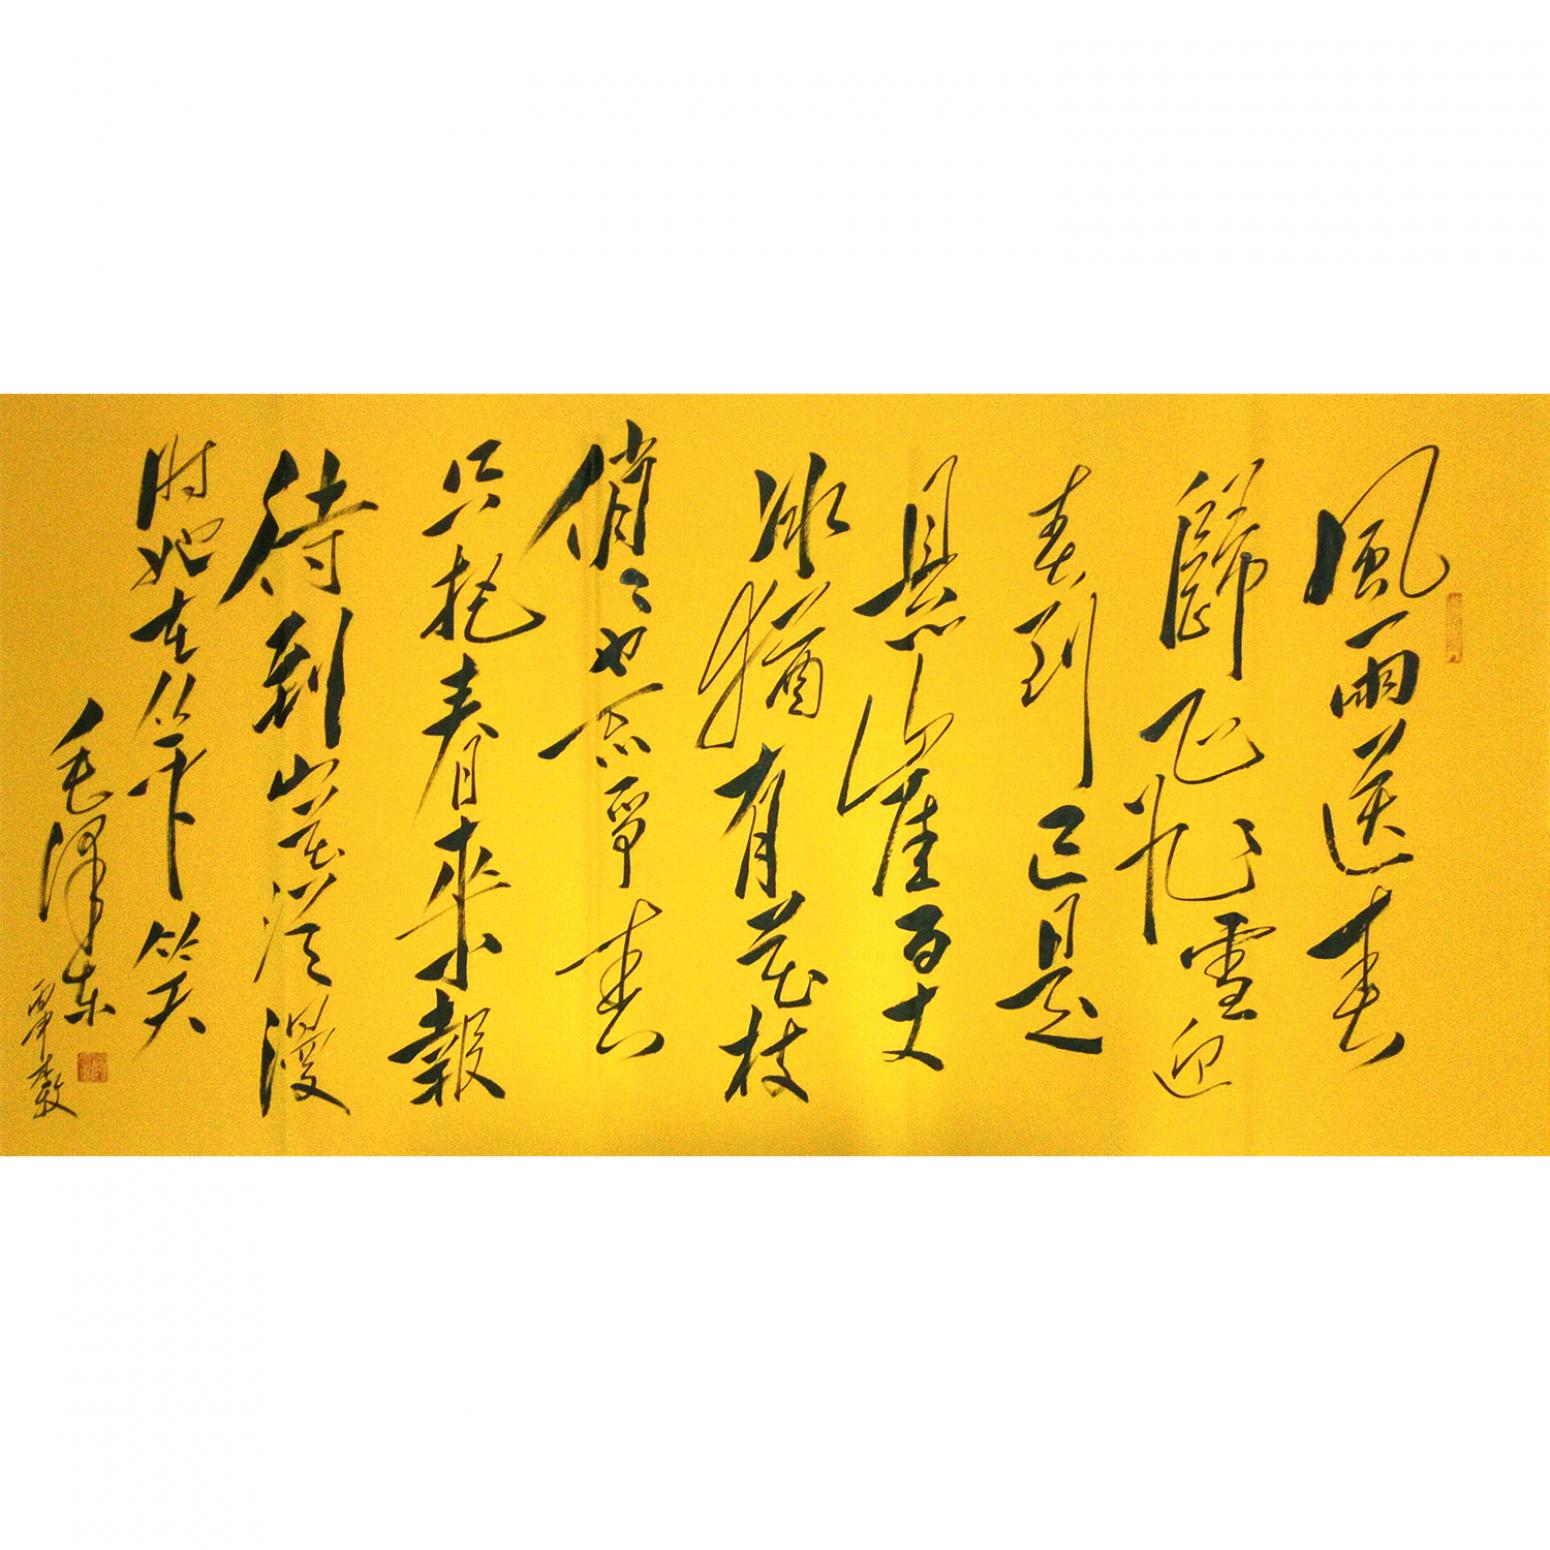 風雨送春
歸飛雪迎
春到已是
悬崖百丈
冰猶有花枝
俏〻也不爭春
只把春來報
待到山花烂漫
时她在丛中笑
毛泽东